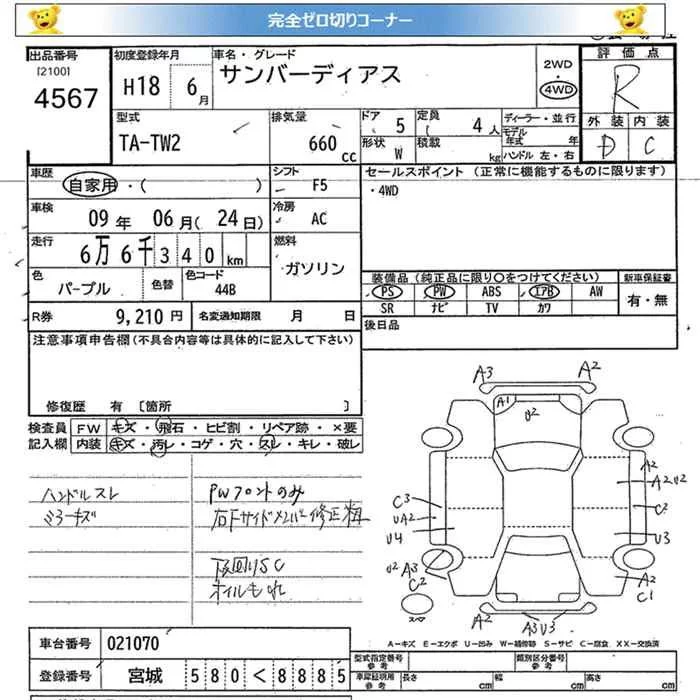 完全ゼロ切りコーナー
出品番号
[2100]
4567
初度登録年月
H18 6月
車名・グレード
サンバーディアス
2WD
4WD
評価点
R
外装 内装
D C
型式
TA-TW2
排気量
660 cc
ドア 5
形状 W
定員 4人
積載 kg
ディーラー・並行
モデル年式 年
ハンドル 左・右
車歴
自家用・( )
シフト F5
車検
09年 06月(24日)
冷房 AC
走行
6万6千340km
燃料
ガソリン
色
パープル
色替
色コード
44B
R券 9,210円
名変通知期限 月 日
セールスポイント (正常に機能するものに限ります)
・4WD
装備品 (純正品に限り〇をつけてください)
新車保証書
PS PW ABS エアB AW
SR ナビ TV カワ
有・無
後日品
注意事項申告欄 (不具合内容等は具体的に記入して下さい)
修復歴 有 [箇所 ]
検査員記入欄
FW キズ・飛石・ヒビ割・リペア跡・×要
内装 キズ・汚レ・コゲ・穴・スレ・キレ・破レ
ハンドルスレ
ミラーキズ
PWフロントのみ
右Fサイドメンバー修正粗
下回りSC
オイルもれ
A3 A2
A1 U2
A2
A2U2
C3 C2
UA2
U4 U3
U2 A3
C2
A2
C1
スペア
A2 A3U3
A-キズ E-エクボ U-凹み W-補修跡 S-サビ C-腐食 XX-交換済
車台番号 021070
登録番号 宮城 580 < 8885
型式指定番号 参考
類別区分番号 参考
車庫証明用 参考 長さ cm 幅 cm 高さ cm